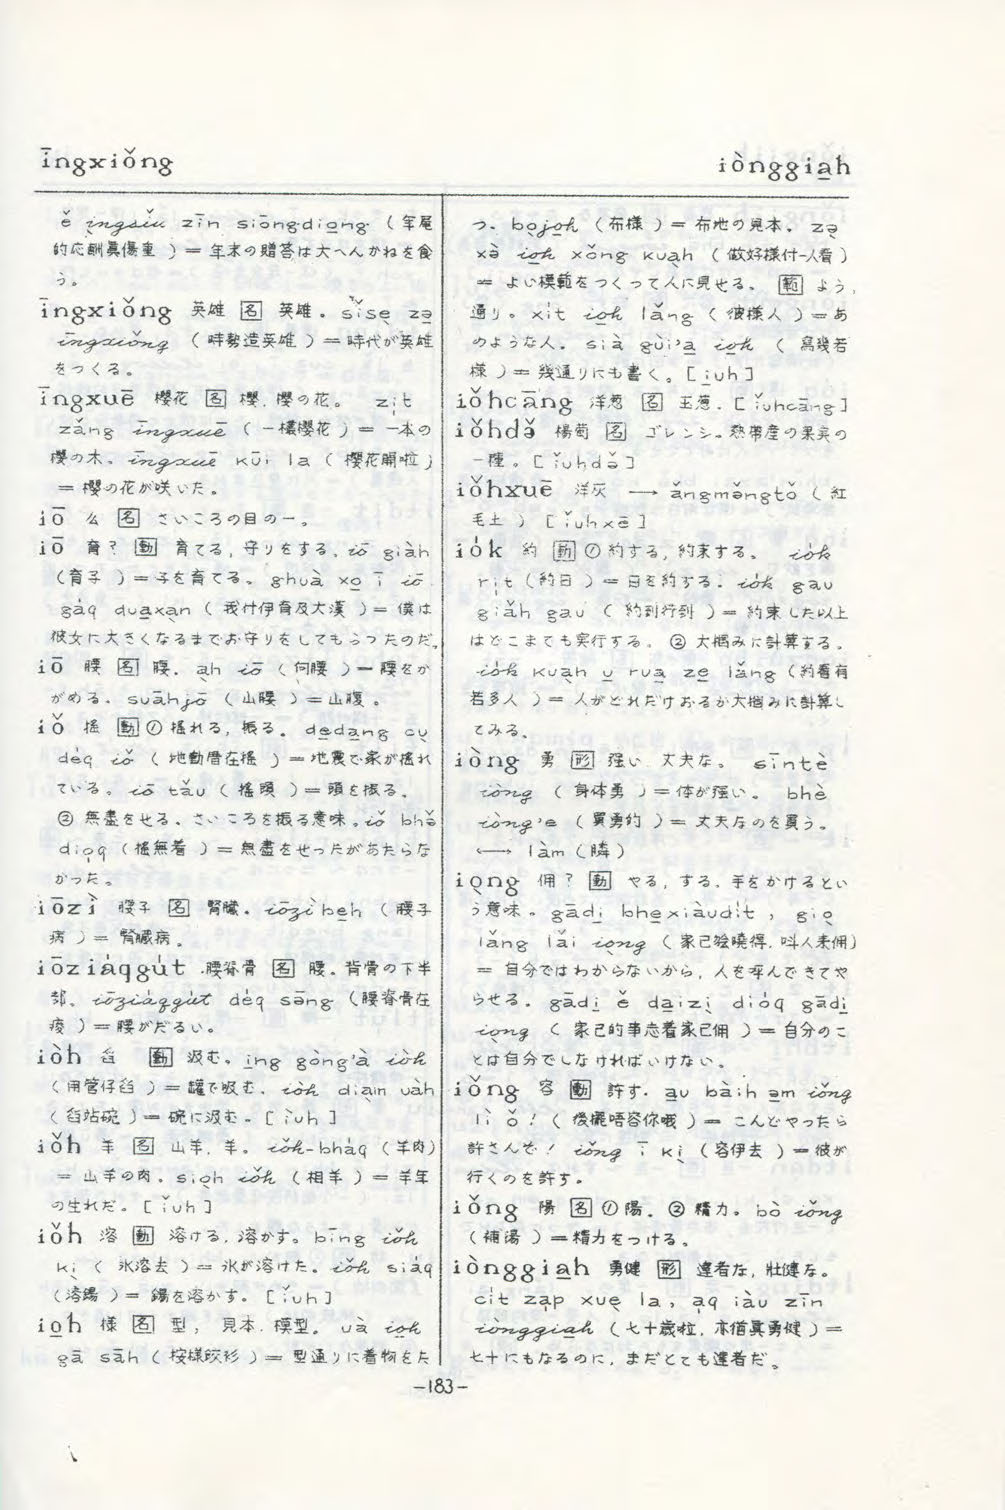 īngxiǒng
iònggia̠h
ě ìngsiu zīn siōng-diong (年尾
的応酬眞傷重 )= 年末の贈答は大へんかねを食
う。
īngxiǒng 英雄 名 英雄。sǐse̠ zə̠
īngxiǒng ( 時勢造英雄 )= 時代が英雄
をつくる。
īngxuē 櫻花 名 櫻, 櫻の花。 zi̍t
zǎng īngxuē ( 一欉櫻花 )= 一本の
櫻の木。īngxuē kūi la ( 櫻花開啦 )
= 櫻の花が咲いた。
iō 么 名 さいころの目の一。
iō 育? 動 育てる, 守りをする。iō giàh
(育子 )= 子を育てる。ghuà xo̠ ī iō
gáq dua̠xa̠n ( 我付伊育及大漢 )= 僕は
彼女に大きくなるまでお守りをしてもらったのだ。
iō 腰 名 腰。a̠h iō ( 向腰 )= 腰をか
がめる。suāhjō ( 山腰 )= 山腹。
iǒ 搖 動 ① 搖れる, 振る。de̠da̠ng cu̠
déq iǒ ( 地動厝在搖 )= 地震で家が搖れ
ている。iō tǎu ( 搖頭 )= 頭を振る。
② 無盡をせる。さいころを振る意味。iǒ bhə̌
dio̍q (搖無着 )= 無盡をせったがあたらな
かった。
iōzì 腰子 名 腎臟。iōzì be̠h ( 腰子
病 )= 腎臟病。
iōziáqgút 腰脊骨 名 腰。背骨の下半
部。iōziáqgút déq sə̄ng (腰脊骨在
痠 )= 腰がだるい。
iòh 舀 動 汲む。i̠ng gòng'à iòh
(用管仔舀 )= 罐で汲む。iòh dia̠m uàh
(舀站碗 )= 碗に汲む。[ ìuh ]
iǒh 羊 名 山羊, 羊。iǒh-bháq (羊肉)
= 山羊の肉。sio̠h iǒh ( 相羊 )= 羊年
の生れだ。[ ǐuh ]
iǒh 溶 動 溶ける, 溶かす。bīng iǒh
ki̠ ( 氷溶去 )= 氷が溶けた。iǒh siáq
(溶錫 )= 錫を溶かす。[ ǐuh ]
io̠h 樣 名 型, 見本, 模型。uà io̠h
gā sāh ( 按樣鉸衫 )= 型通りに着物をた
つ。bo̠jo̠h (布樣 )= 布地の見本。zə̠
xə̀ io̠h xǒng kua̠h ( 做好樣付人看)
= よい模範をつくって人に見せる。 範 よう,
通り。xi̍t io̠h lǎng ( 彼樣人 )= あ
のような人。sià gùi'a io̠h ( 寫幾若
樣 )= 幾通りにも書く。[ i̠uh ]
iǒhcāng 洋葱 名 玉葱。[ ǐuhcāng ]
iǒhdə̌ 楊萄 名 ゴレンシ。熱帶産の果実の
一種。[ ǐuhdə̌ ]
iǒhxuē 洋灰 → ǎngmə̌ngtǒ ( 紅
毛土 ) [ ǐuhxē ]
iók 約 動 ① 約する, 約束する。 iók
ri̍t (約日 )= 日を約する。iók gau
giǎh gau ( 約到行到 )= 約束した以上
はどこまでも実行する。② 大掴みに計算する。
iók kua̠h u̠ rua̠ ze̠ lǎng (約看有
若多人 )= 人がどれだけおるか大掴みに計算し
てみる。
iòng 勇 形 强い, 丈夫な。 sīntè
iòng ( 身体勇 )= 体が强い。 bhè
iòng'e ( 買勇的 )= 丈夫なのを買う。
←→ làm (䏰)
io̠ng 佣? 動 やる, する。手をかけるとい
う意味。gādi̠ bhe̠xiàudi̍t , gio̠
lǎng lǎi io̠ng ( 家己𣍐曉得, 叫人来佣)
= 自分ではわからないから, 人を呼んできてや
らせる。gādi̠ ě da̠izi̠ dióq gādi̠
io̠ng ( 家己的事志着家己佣 )= 自分のこ
とは自分でしなければいけない。
iǒng 容 動 許す。a̠u bàih a̠m iǒng
lì ǒ! ( 後擺唔容你哦 )= こんどやったら
許さんぞ! iǒng ī ki̠ (容伊去 )= 彼が
行くのを許す。
iǒng 陽 名 ① 陽。② 精力。bò iǒng
(補陽 )= 精力をつける。
iònggia̠h 勇健 形 達者な, 壯健な。
cit za̍p xue̠ la, a̍q iàu zīn
iònggia̠h (七十歳啦, 亦猶眞勇健 )=
七十にもなるのに, まだとても達者だ。
-183-